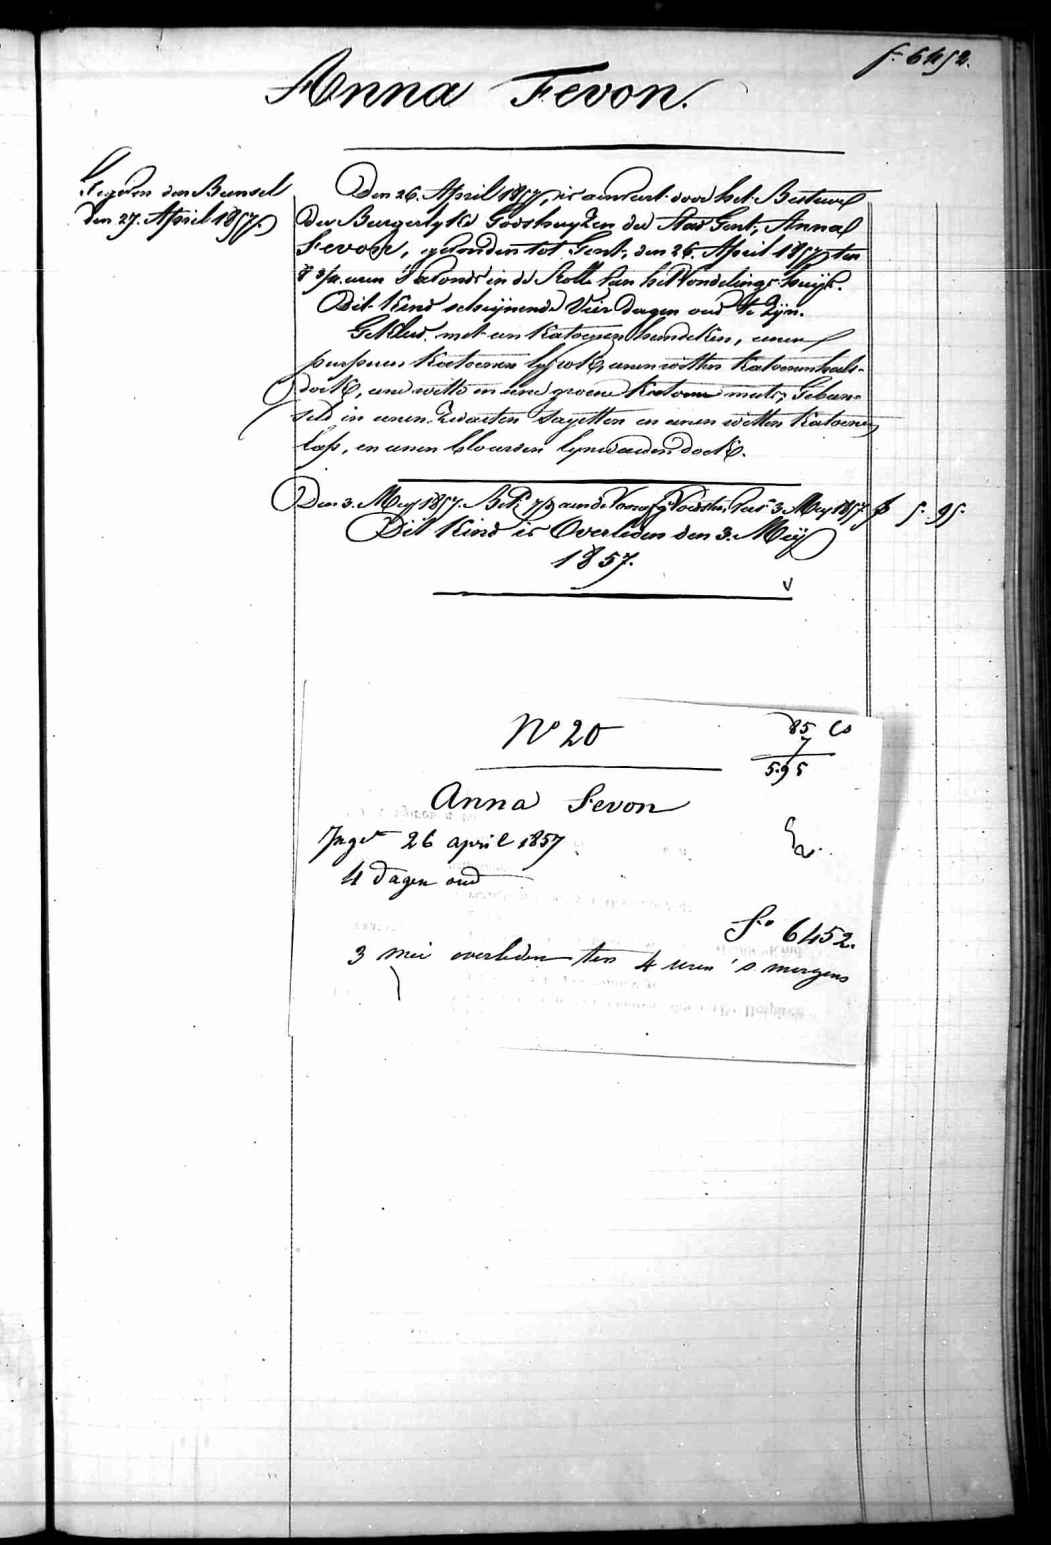 f. 6452.
Anna Fevon.
Gegeven den Bunsel
den 27. April 1857.
Den 26. April 1857, is aenveert door het Bestuur
der Burgerlyke Godshuyzen der Stad Gent, Anna
Fevon, gevonden tot Gent, den 26. April 1857, ten
8 3/4 uren 's avonds in de Rolle van het Vondelings-huys.
Dit Kind schynende Vier dagen oud te Zyn.
Gekleed met een Katoenen hemdeken, eenen
purperen Katoenen lyfrok, eenen witten Katoenen hals-
doek, eene witte en eene groene Katoene muts, Gebun-
seld in eenen Zwarten Sayetten en eenen witten Katoenen
lap, en eenen blauwen lynwaeden doek.
Den 3. Mey 1857. Bet. aen de Voedster, tot 3. Mey 1857 fr 5.95.
Dit Kind is Overleden den 3. Mey
1857.
N° 20
85 Cs
7
5.95
Anna Fevon
Inget 26 april 1857
4 dagen oud
F° 6452.
3 mei overleden ten 4 uren 's morgens